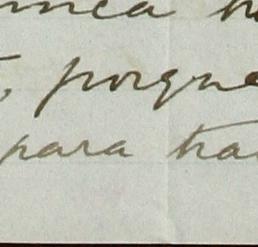 nunca h
, porque
para tra